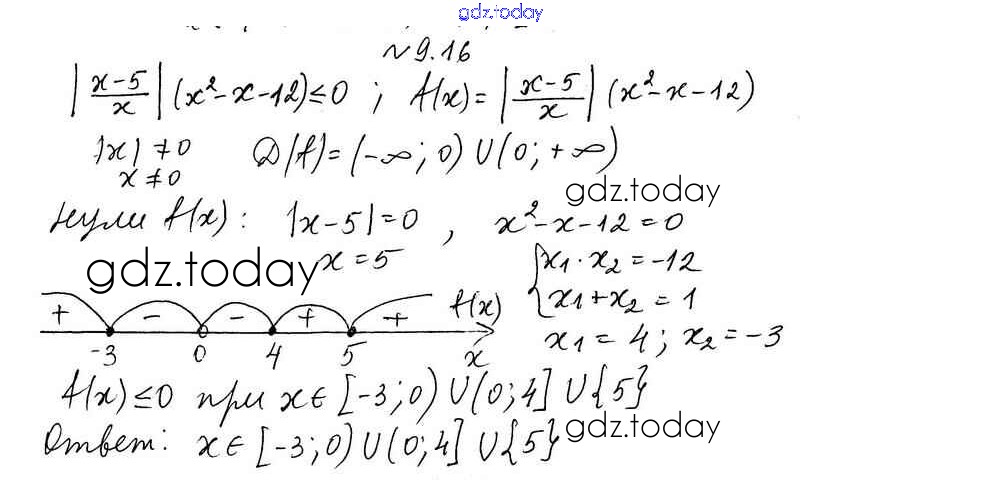 gdz.today
№9.16
|x-5/x| (x²-x-12)≤0 ; f(x)=|x-5/x| (x²-x-12)
|x|≠0 D(f)=(-∞;0)∪(0;+∞)
x≠0
gdz.today
нули f(x): |x-5|=0 , x²-x-12=0
gdz.today x=5 {x₁·x₂=-12
x₁+x₂=1
+ - - + + f(x)
x₁=4; x₂=-3
-3 0 4 5 x
f(x)≤0 при x∈[-3;0)∪(0;4]∪{5}
Ответ: x∈[-3;0)∪(0;4]∪{5}
gdz.today